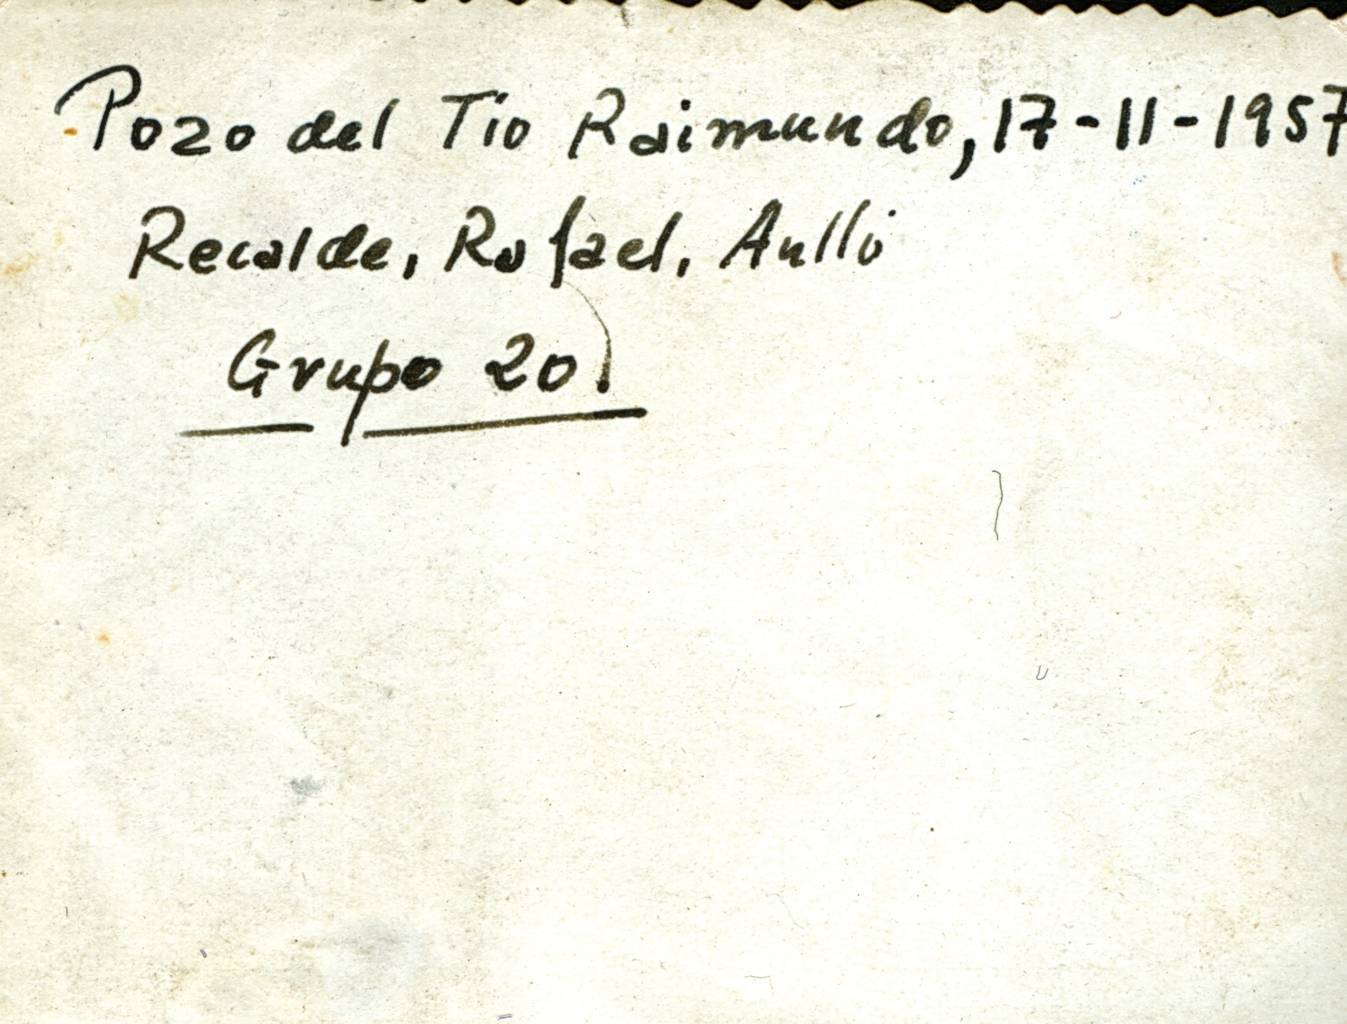 Pozo del Tío Raimundo, 17-11-1957
Recalde, Rafael, Aulló
Grupo 20